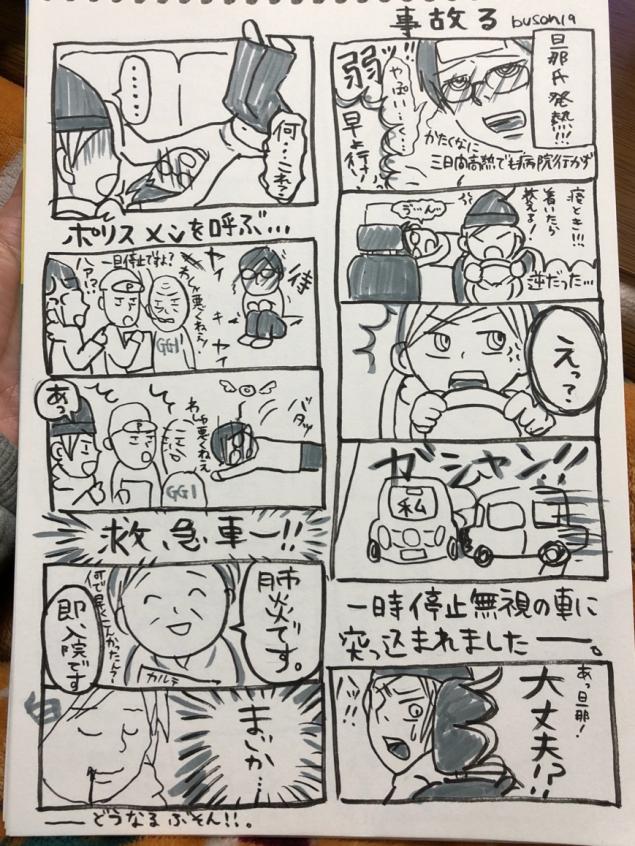 事故る
buson19
旦那氏発熱!!!
弱ッ!!
やばい…く…
早よ行け
かたくなに
三日間高熱でも病院行かず
寝とき!!!
着いたら
教える!
う…ん
逆だった…
えっ?
ガシャン!!
私
一時停止無視の車に
突っ込まれましたー。
あっ旦那!
大丈夫!?
……
何…これ?
ポリスメンを呼ぶ…
一旦停止ですよ?
ハア!?
わしゃ悪くねぇ!
GGI
待
ヤイ
キ
ヤイ
あっ
わしゃ悪くねぇ
GGI
バタッ
救急車ー!!
肺炎です。
カルテ
即、入院です
まじか…
どうなるぶそん!!。